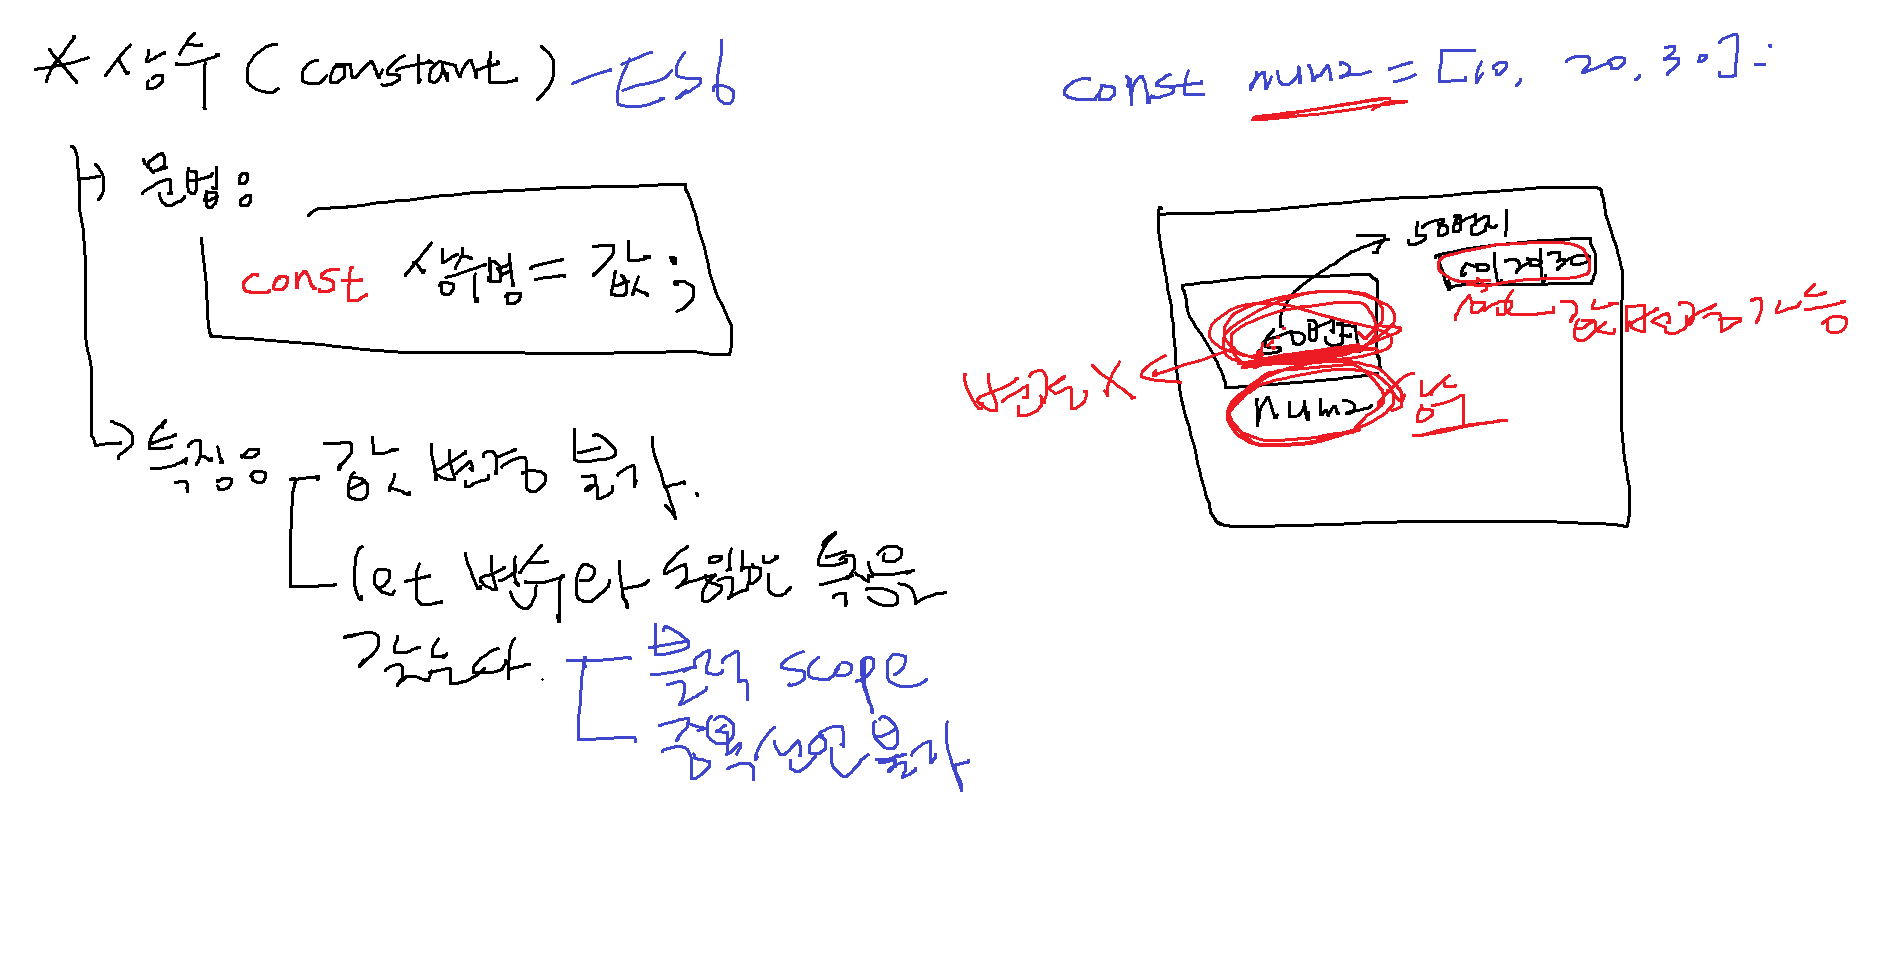 * 상수 (constant) - ES6
문법:
const 상수명 = 값;
특징: 값 변경 불가.
let 변수와 동일한 특징을
갖는다.
블럭 scope
중복선언 불가
const num2 = [10, 20, 30];
500번지
10|20|30
값 변경가능
500번지
변경 X
num2